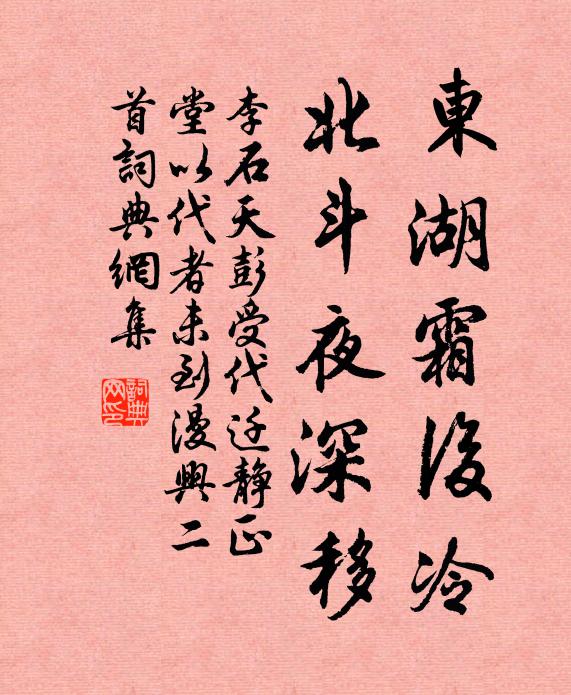 東湖霜後冷
北斗夜深移
李石天彭受代迁静正
堂以代者未到漫興二
首詞典網集
詞典
网印